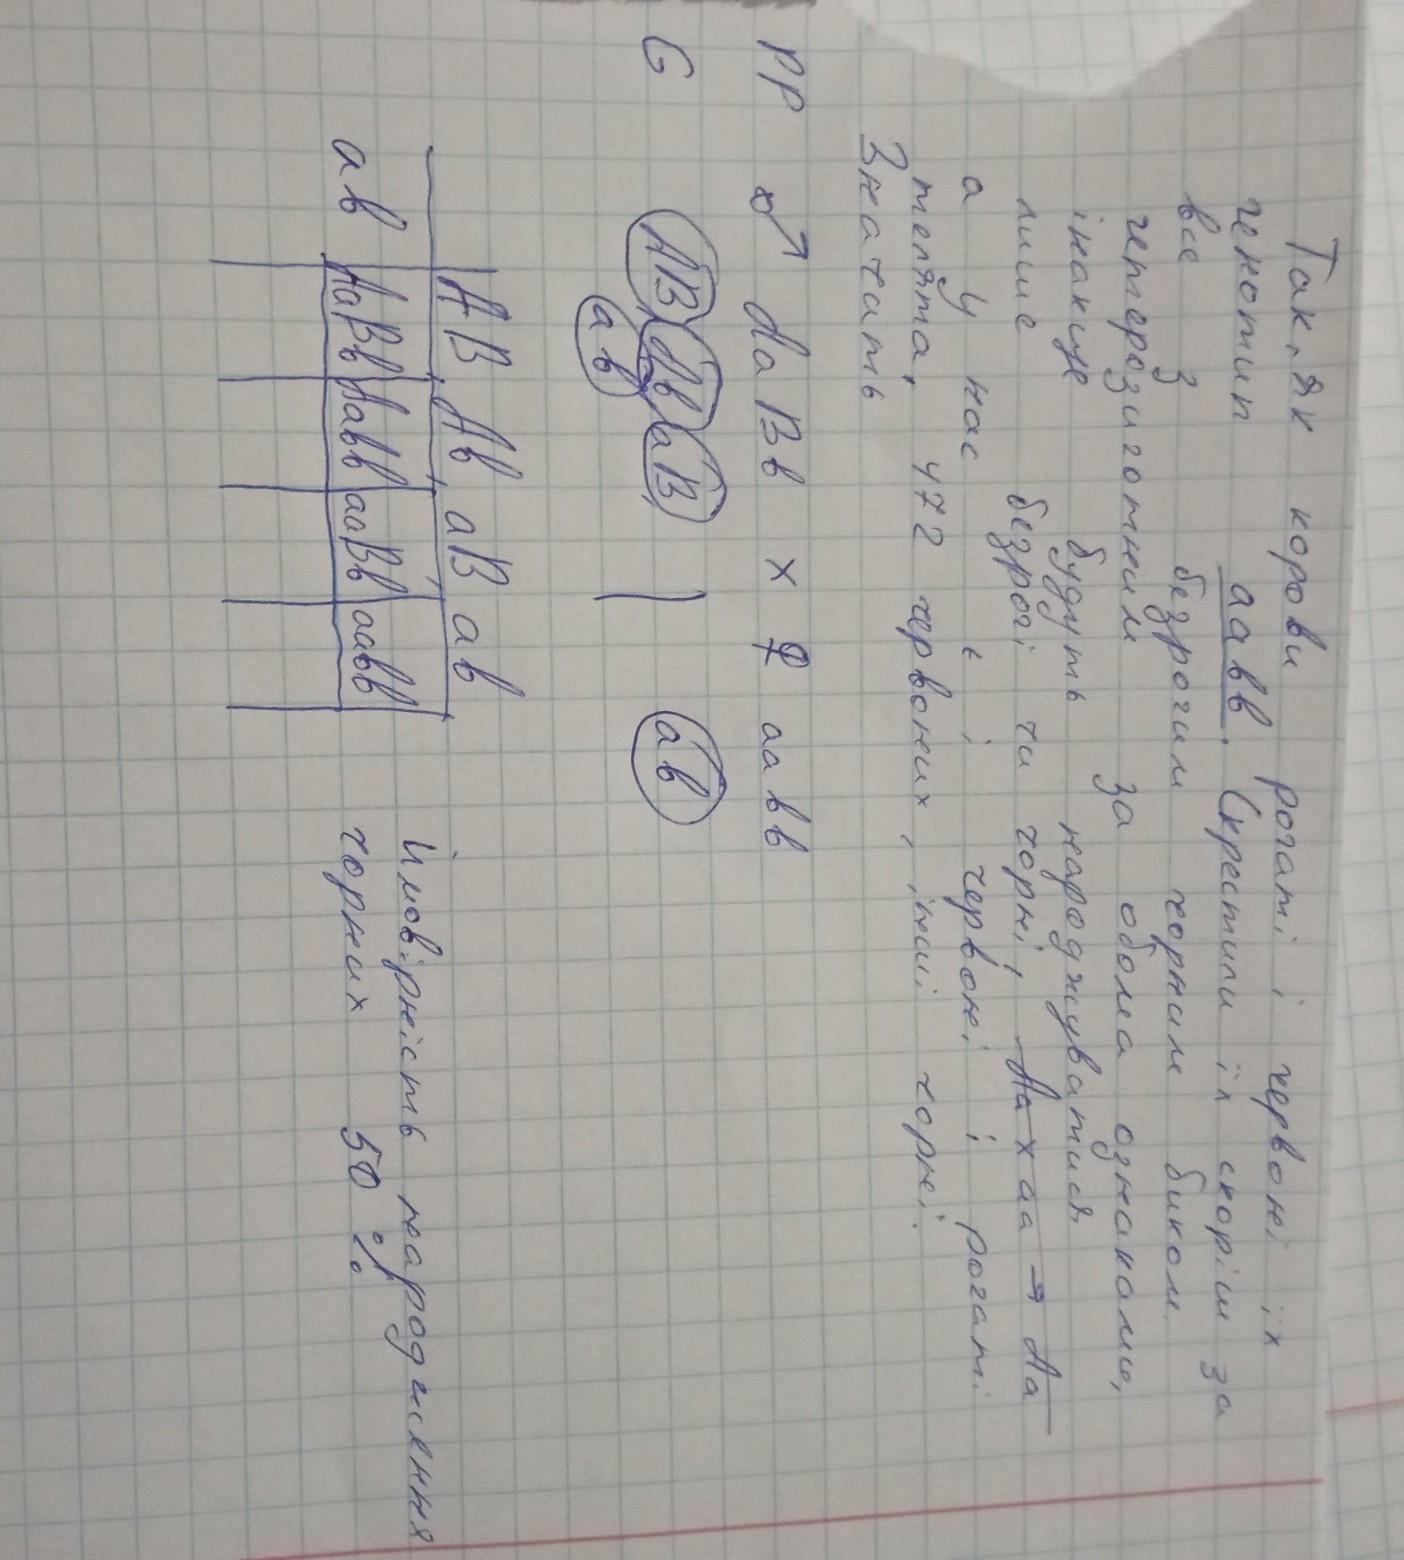 Так, як корови рогаті і червоні їх
генотип аавв. Скрестили їх скоріш за
все з безрогим чорним биком.
гетерозиготним за обома ознаками,
інакше будуть народжуватися
лише безрогі чи чорні, Аа х аа → Аа
а у нас є і червоні і рогаті
телята, 472 червоних, інші чорні.
Значить
РР ♂ АаВв х ♀ аавв
G АВ Ав аВ | ав
ав
АВ Ав аВ ав
ав АаВв Аавв ааВв аавв
Ймовірність народження
чорних 50 %